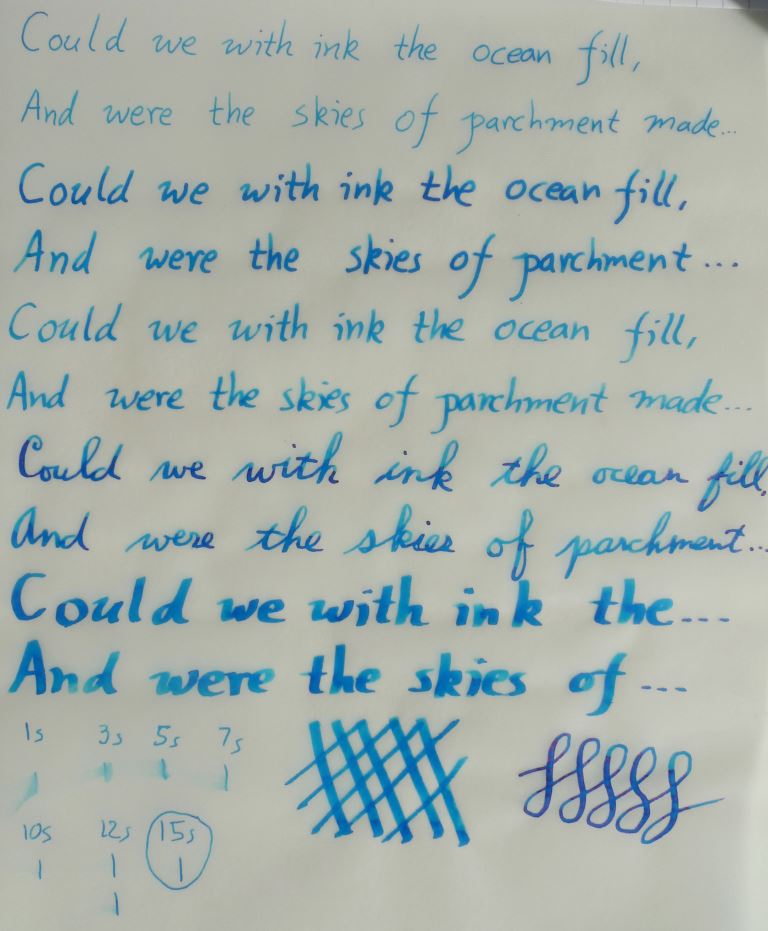 Could we with ink the ocean fill,
And were the skies of parchment made...
Could we with ink the ocean fill,
And were the skies of parchment...
Could we with ink the ocean fill,
And were the skies of parchment made...
Could we with ink the ocean fill,
And were the skies of parchment...
Could we with ink the...
And were the skies of...
1s 3s 5s 7s
10s 12s 15s